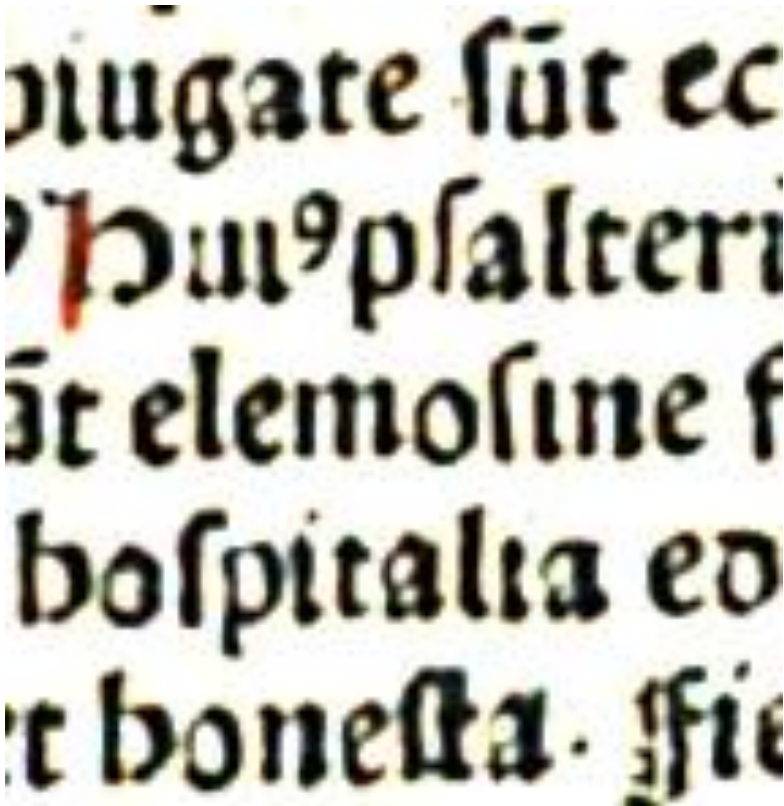 piugate ſūt ec
Huiꝰ pſalteri
āt elemoſine f
hoſpitalia eo
et honeſta. Fie